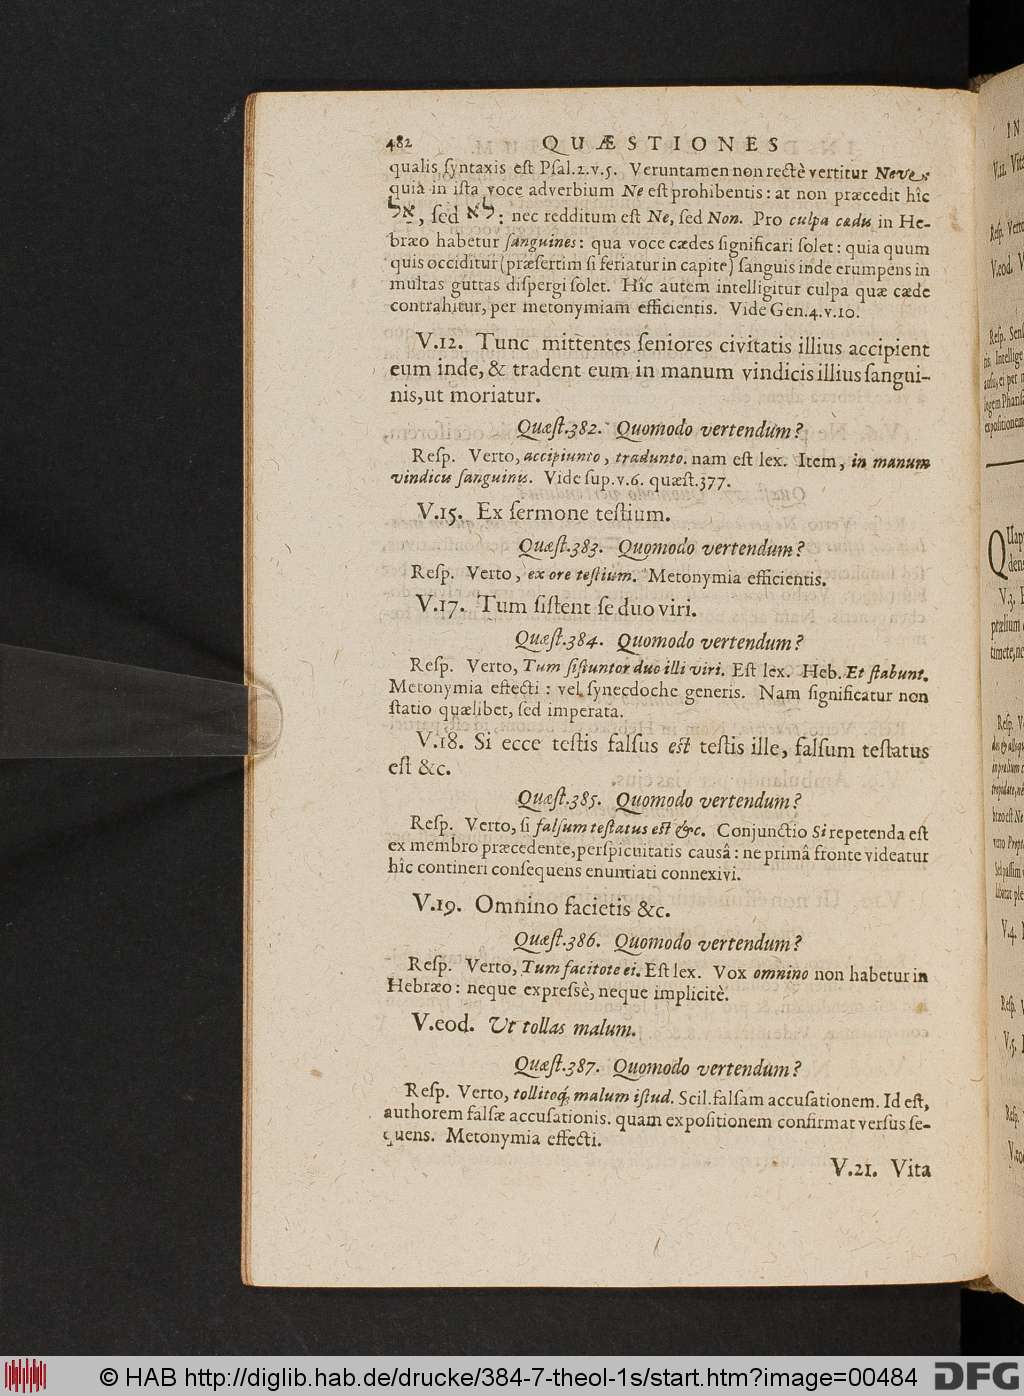 482 QUÆSTIONES
qualis ſyntaxis eſt Pſal.2.v.5. Veruntamen non rectè vertitur Neve:
quia in iſta voce adverbium Ne eſt prohibentis: at non præcedit hîc
אַל, ſed לא: nec redditum eſt Ne, ſed Non. Pro culpa cædis in He-
bræo habetur ſanguines: qua voce cædes ſignificari ſolet: quia quum
quis occiditur (præſertim ſi feriatur in capite) ſanguis inde erumpens in
multas guttas diſpergi ſolet. Hîc autem intelligitur culpa quæ cæde
contrahitur, per metonymiam efficientis. Vide Gen.4.v.10.
V.12. Tunc mittentes ſeniores civitatis illius accipient
eum inde, & tradent eum in manum vindicis illius ſangui-
nis, ut moriatur.
Quæſt.382. Quomodo vertendum?
Reſp. Verto, accipiunto, tradunto. nam eſt lex. Item, in manum
vindicis ſanguinis. Vide ſup.v.6. quæſt.377.
V.15. Ex ſermone teſtium.
Quæſt.383. Quomodo vertendum?
Reſp. Verto, ex ore teſtium. Metonymia efficientis.
V.17. Tum ſiſtent ſe duo viri.
Quæſt.384. Quomodo vertendum?
Reſp. Verto, Tum ſiſtuntor duo illi viri. Eſt lex. Heb. Et ſtabunt.
Metonymia effecti: vel ſynecdoche generis. Nam ſignificatur non
ſtatio quælibet, ſed imperata.
V.18. Si ecce teſtis falſus eſt teſtis ille, falſum teſtatus
eſt &c.
Quæſt.385. Quomodo vertendum?
Reſp. Verto, ſi falſum teſtatus eſt &c. Conjunctio Si repetenda eſt
ex membro præcedente, perſpicuitatis causâ: ne primâ fronte videatur
hîc contineri conſequens enuntiati connexivi.
V.19. Omnino facietis &c.
Quæſt.386. Quomodo vertendum?
Reſp. Verto, Tum facitote ei. Eſt lex. Vox omnino non habetur in
Hebræo: neque expreſsè, neque implicitè.
V.eod. Ut tollas malum.
Quæſt.387. Quomodo vertendum?
Reſp. Verto, tollitoq́; malum iſtud. Scil. falſam accuſationem. Id eſt,
authorem falſæ accuſationis. quam expoſitionem confirmat verſus ſe-
quens. Metonymia effecti.
V.21. Vita
© HAB http://diglib.hab.de/drucke/384-7-theol-1s/start.htm?image=00484
DFG